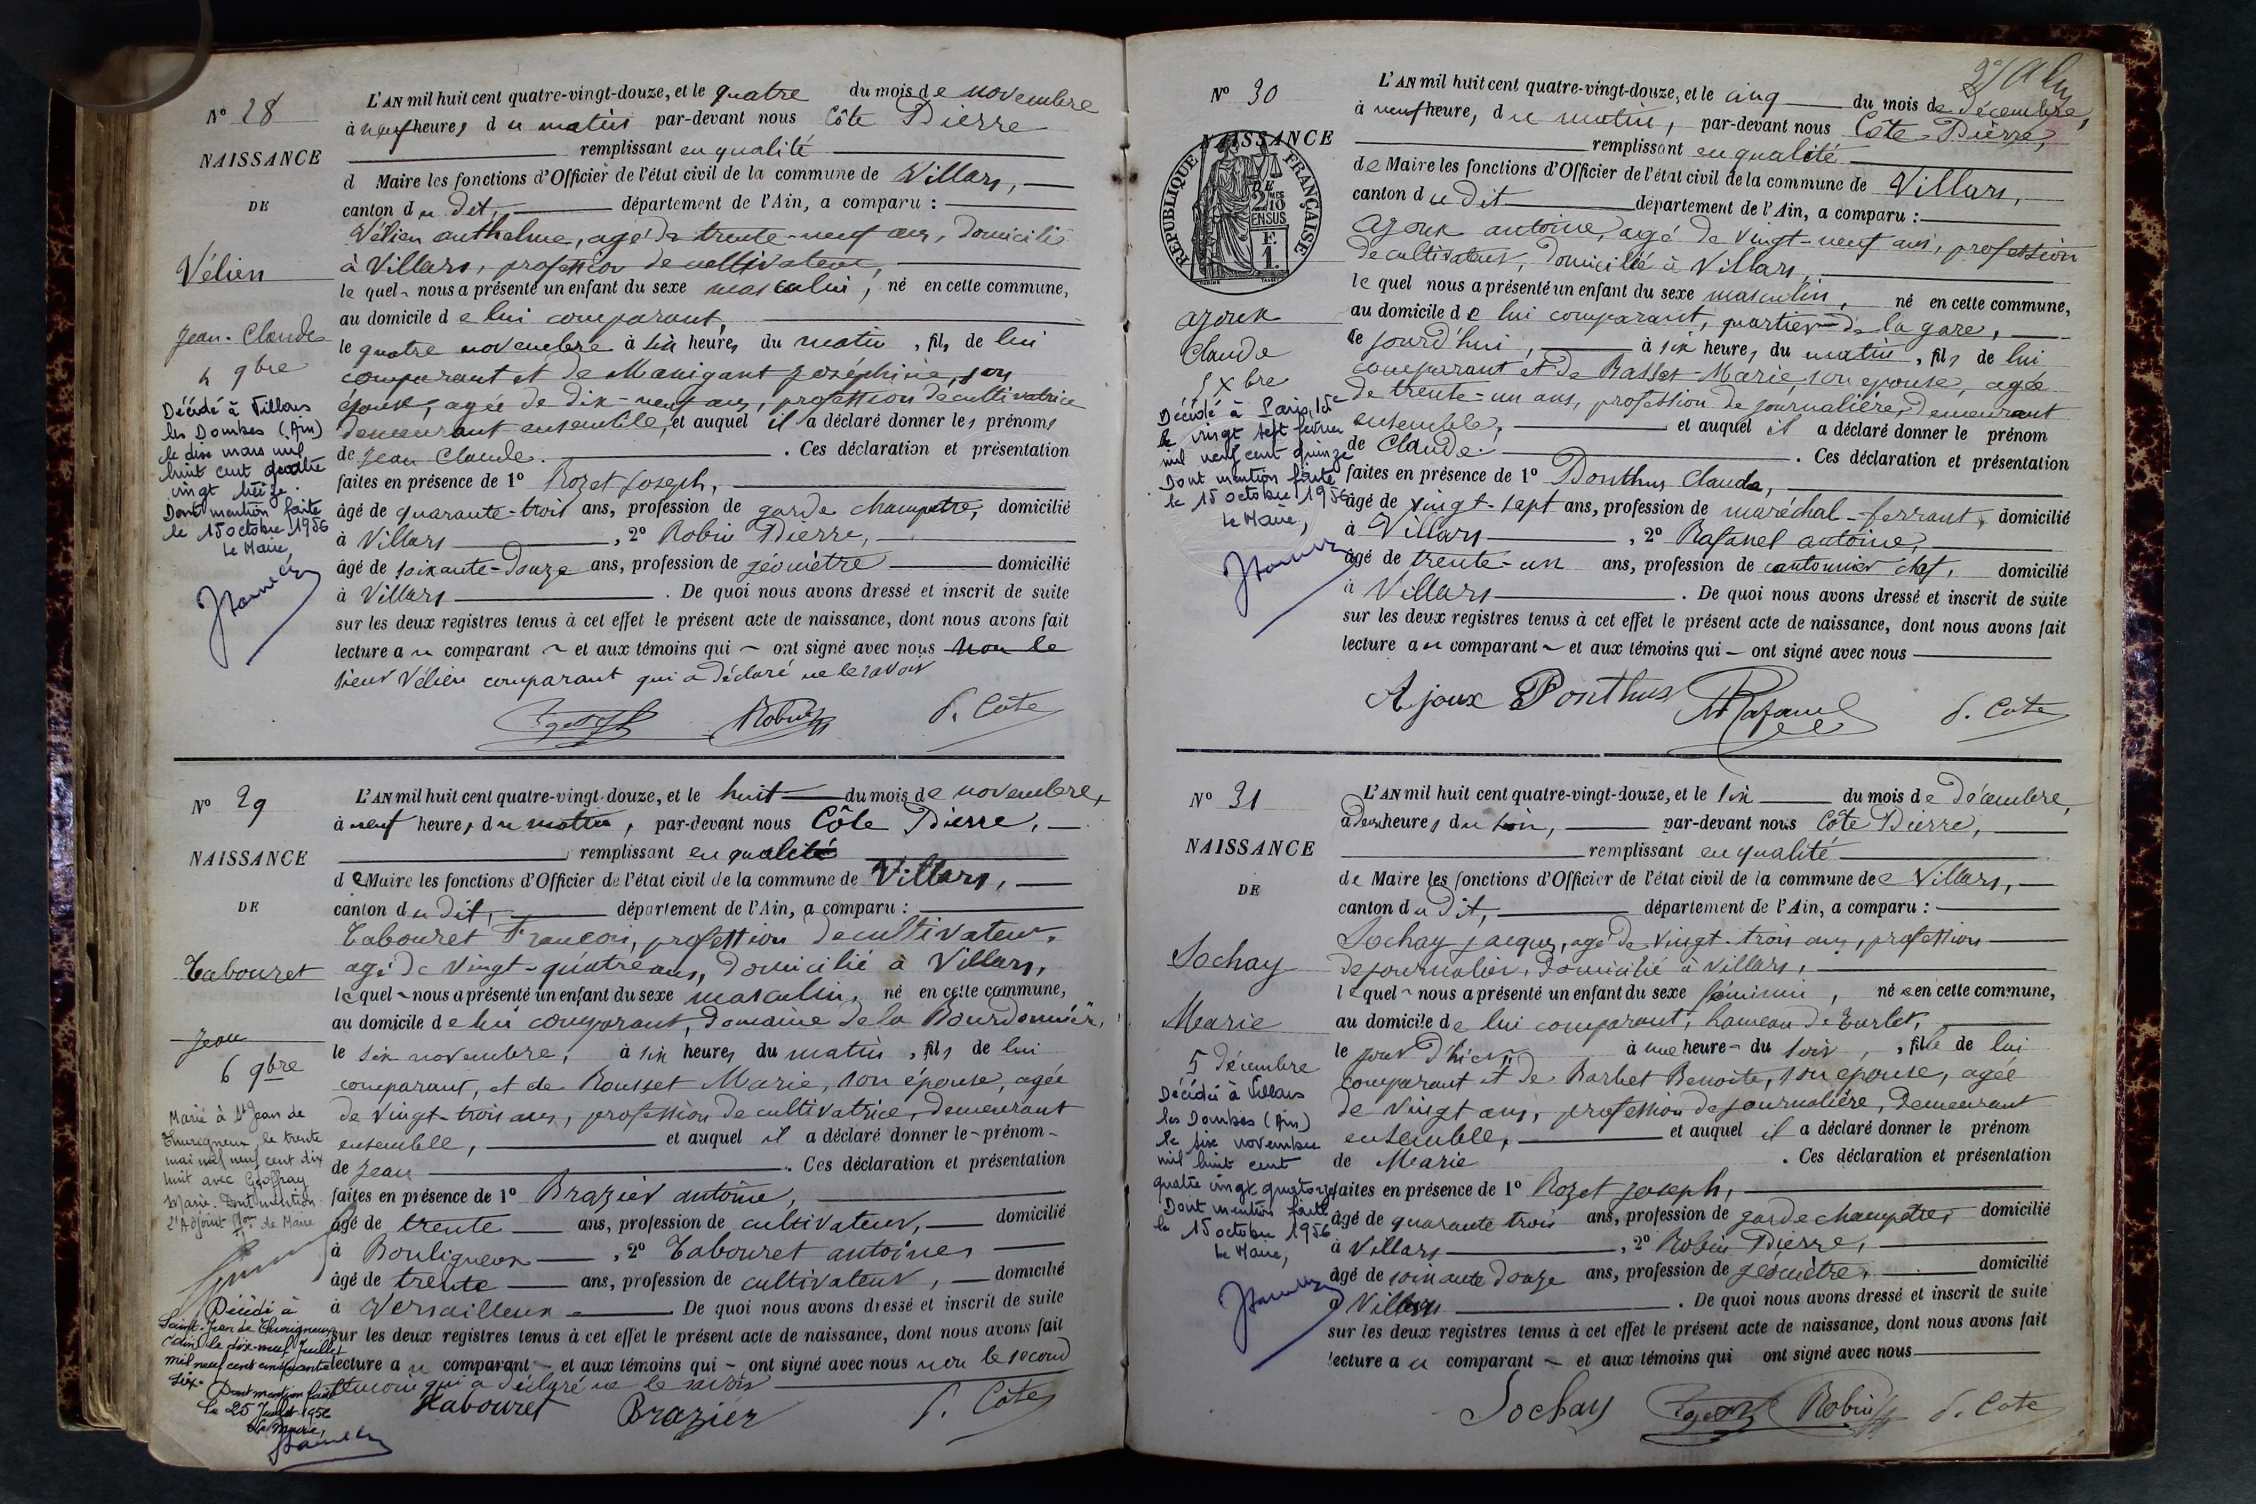 N° 28
NAISSANCE
DE
Vélien
Jean-Claude
4 9bre
Décédé à Villars
les Dombes (Ain)
le dix mars mil
huit cent quatre
vingt treize.
Dont mention faite
le 15 octobre 1956
Le Maire,
L'AN mil huit cent quatre-vingt-douze, et le quatre du mois de novembre
à neuf heures du matin par-devant nous Côte Pierre
remplissant en qualité
d Maire les fonctions d'Officier de l'état civil de la commune de Villars,
canton du dit, département de l'Ain, a comparu :
Vélien anthelme, agé de trente-neuf ans, domicilié
à Villars, profession de cultivateur,
le quel nous a présenté un enfant du sexe masculin, né en cette commune,
au domicile de lui comparant,
le quatre novembre à six heures du matin, fils de lui
comparant et de Manigant Joséphine, son
épouse, agée de dix-neuf ans, profession de cultivatrice
demeurant ensemble, et auquel il a déclaré donner les prénoms
de Jean Claude. Ces déclaration et présentation
faites en présence de 1° Rozet Joseph,
âgé de quarante-trois ans, profession de garde champetre, domicilié
à Villars, 2° Robin Pierre,
âgé de soixante-douze ans, profession de géomètre domicilié
à Villars. De quoi nous avons dressé et inscrit de suite
sur les deux registres tenus à cet effet le présent acte de naissance, dont nous avons fait
lecture au comparant et aux témoins qui ont signé avec nous non le
sieur Vélien comparant qui a déclaré ne le savoir
Robin P. Côte
N° 29
NAISSANCE
DE
Tabouret
Jean
6 9bre
Marié à St Jean de
Thurigneux, le trente
mai mil neuf cent dix
huit avec Geoffray
Marie. Dont mention
L'Adjoint de Maire
Décédé à
Saint-Jean de Thurigneux
(Ain) le dix-neuf Juillet
mil neuf cent cinquante
six.
Dont mention faite
le 25 Juillet 1956
Le Maire,
L'AN mil huit cent quatre-vingt-douze, et le huit du mois de novembre,
à neuf heures du matin, par-devant nous Côte Pierre,
remplissant en qualité
de Maire les fonctions d'Officier de l'état civil de la commune de Villars,
canton du dit, département de l'Ain, a comparu :
Tabouret François, profession de cultivateur,
agé de vingt-quatre ans, domicilié à Villars,
le quel nous a présenté un enfant du sexe masculin, né en cette commune,
au domicile de lui comparant, domaine de la Bourdonnière,
le six novembre, à six heures du matin, fils de lui
comparant, et de Rousset Marie, son épouse, agée
de vingt-trois ans, profession de cultivatrice, demeurant
ensemble, et auquel il a déclaré donner le prénom
de Jean. Ces déclaration et présentation
faites en présence de 1° Brazier antoine,
âgé de trente ans, profession de cultivateur, domicilié
à Bouligneux, 2° Tabouret antoine
âgé de trente ans, profession de cultivateur, domicilié
à Versailleux. De quoi nous avons dressé et inscrit de suite
sur les deux registres tenus à cet effet le présent acte de naissance, dont nous avons fait
lecture au comparant et aux témoins qui ont signé avec nous non le second
témoin qui a déclaré ne le savoir
Tabouret Brazier P. Côte
N° 30
NAISSANCE
RÉPUBLIQUE FRANÇAISE
2/10
EN SUS
F.
1.
ajoux
Claude
5 Xbre
Décédé à Paris, 15e
le vingt sept février
mil neuf cent quinze
Dont mention faite
le 15 octobre 1956
Le Maire,
L'AN mil huit cent quatre-vingt-douze, et le cinq du mois de Décembre,
à neuf heure, du matin, par-devant nous Côte Pierre,
remplissant en qualité
de Maire les fonctions d'Officier de l'état civil de la commune de Villars,
canton du dit département de l'Ain, a comparu :
ajoux antoine, agé de vingt-neuf ans, profession
de cultivateur, domicilié à Villars,
le quel nous a présenté un enfant du sexe masculin, né en cette commune,
au domicile de lui comparant, quartier de la gare,
ce jourd'hui, à six heures du matin, fils de lui
comparant et de Basset Marie, son épouse, agée
de trente-un ans, profession de journalière, demeurant
ensemble, et auquel il a déclaré donner le prénom
de Claude. Ces déclaration et présentation
faites en présence de 1° Ponthus Claude,
âgé de vingt-sept ans, profession de maréchal-ferrant, domicilié
à Villars, 2° Rafanel antoine,
âgé de trente-un ans, profession de cantonnier chef, domicilié
à Villars. De quoi nous avons dressé et inscrit de suite
sur les deux registres tenus à cet effet le présent acte de naissance, dont nous avons fait
lecture au comparant et aux témoins qui ont signé avec nous
Ajoux Ponthus Rafanel P. Côte
N° 31
NAISSANCE
DE
Sochay
Marie
5 décembre
Décédée à Villars
les Dombes (Ain)
le six novembre
mil huit cent
quatre vingt quatorze
Dont mention faite
le 15 octobre 1956
Le Maire,
L'AN mil huit cent quatre-vingt-douze, et le six du mois de Décembre,
à deux heures du soir, par-devant nous Côte Pierre,
remplissant en qualité
de Maire les fonctions d'Officier de l'état civil de la commune de Villars,
canton du dit, département de l'Ain, a comparu :
Sochay jacques, agé de vingt-trois ans, profession
de journalier, domicilié à Villars,
le quel nous a présenté un enfant du sexe féminin, née en cette commune,
au domicile de lui comparant, hameau de
le jour d'hier à une heure du soir, fille de lui
comparant et de Barbet Benoite, son épouse, agée
de vingt ans, profession de journalière, demeurant
ensemble, et auquel il a déclaré donner le prénom
de Marie. Ces déclaration et présentation
faites en présence de 1° Rozet joseph,
âgé de quarante trois ans, profession de garde champetre, domicilié
à Villars, 2° Robin Pierre,
âgé de soixante douze ans, profession de géomètre, domicilié
à Villars. De quoi nous avons dressé et inscrit de suite
sur les deux registres tenus à cet effet le présent acte de naissance, dont nous avons fait
lecture au comparant et aux témoins qui ont signé avec nous
Sochay Robin P. Côte